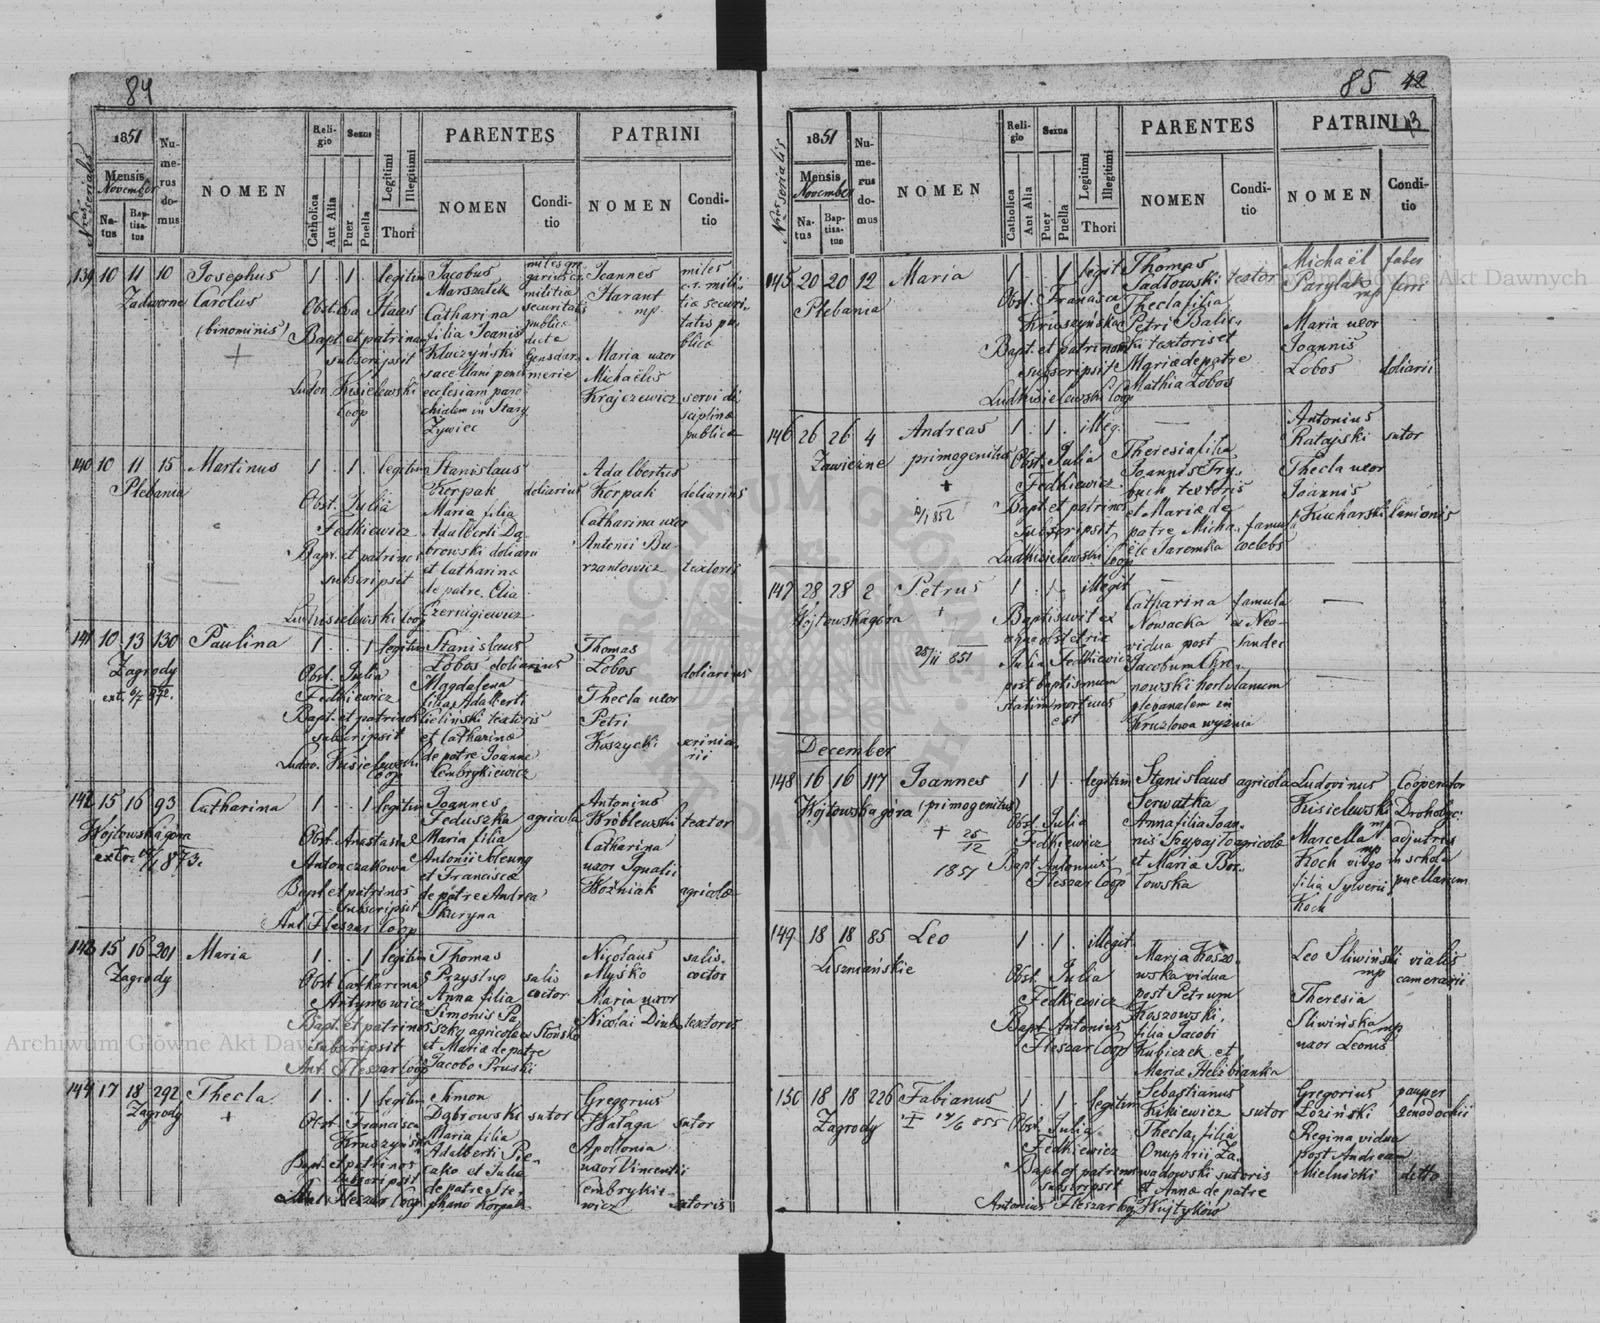 84
1851
Mensis
November
Nrus serialis
Natus
Baptisatus
Numerus domus
NOMEN
Religio
Catholica
Aut Alia
Sexus
Puer
Puella
Legitimi
Illegitimi
Thori
PARENTES
NOMEN
Conditio
PATRINI
NOMEN
Conditio
139 10 11 10 Josephus 1 . 1 . legitim
Zadworne Carolus
(binominis)
Obst. Eva Staas
Bapt. et patrinos
subscripsit
Ludov. Kisielewski
Coop
Jacobus
Marszałek
Catharina
filia Joanis
Kluczyński
sacellani penes
ecclesiam paro
chialem in Stary
Żywiec
miles gre
garius c.r.
militia
securitatis
publicæ
dicta
Gensdar
merie
Joannes
Harant
mp.
Maria uxor
Michaëlis
Krajczewicz
miles
c.r. mili
tiæ securi
tatis pu
blicæ
servi di
sciplinæ
publicæ
140 10 11 15 Martinus 1 . 1 . legitim
Plebania
Obst. Julia
Fedkiewicz
Bapt. et patrinos
subscripsit
Lud Kisielewski Coop
Stanislaus
Korpak doliarius
Maria filia
Adalberti Dą
browski doliarii
et Catharinæ
de patre Elia
Czernigiewicz
Adalbertus
Korpak doliarius
Catharina uxor
Antonii Bu
rzantowicz textoris
141 10 13 130 Paulina 1 . . 1 legitim
Zagrody
ext. 6/7 870.
Obst. Julia
Fedkiewicz
Bapt. et patrinos
subscripsit
Ludov. Kisielewski
Coop
Stanislaus
Łobos doliarius
Magdalena
filia Adalberti
Cieliński textoris
et Catharinæ
de patre Joanne
Cembrykiewicz
Thomas
Łobos doliarius
Thecla uxor
Petri
Koszycki scrinia
rii
142 15 16 93 Catharina 1 . . 1 legitim
Wójtowskagóra
Obst. Anastasia
Antończakowa
Bapt. et patrinos
subscripsit
Ant Fleszar Coop
Joannes
Feduszka agricola
Maria filia
Antonii
et Franciscæ
de patre Andrea
Skuryna
Antonius
Wróblewski textor
Catharina
uxor Ignatii
Woźniak agricolæ
143 15 16 201 Maria 1 . . 1 legitim
Zagrody
Obst Catharina
Antymowicz
Bapt. et patrinos
subscripsit
Ant. Fleszar Coop
Thomas
Przystup salis
coctor
Anna filia
Simonis Pa
szko agricolæ
et Mariæ de patre
Jacobo Pruski
Nicolaus salis
Myśko coctor
Maria uxor
Nicolai textoris
144 17 18 292 Thecla 1 . . 1 legitim
Zagrody
Obst. Francisca
Kruszyńska
Bapt. et patrinos
subscripsit
Ant. Fleszar Coop
Simon
Dąbrowski sutor
Maria filia
Adalberti Pie
cako et Julia
de patre Ste
phano Korpak
Gregorius
Wałaga sutor
Apollonia
uxor Vincentii
Cembrykie
wicz sutoris
85 42
43
1851
Mensis
November
Nrus serialis
Natus
Baptisatus
Numerus domus
NOMEN
Religio
Catholica
Aut Alia
Sexus
Puer
Puella
Legitimi
Illegitimi
Thori
PARENTES
NOMEN
Conditio
PATRINI
NOMEN
Conditio
145 20 20 12 Maria 1 . . 1 legit
Plebania
Obst. Francisca
Kruszyńska
Bapt. et patrinos
subscripsit
Lud Kisielewski Coop
Thomas
Sadłowski textor
Thecla filia
Petri Balic
ki textoris et
Mariæ de patre
Mathia Łobos
Michaël faber
Parylak mp ferri
Maria uxor
Joannis
Łobos doliarii
146 26 26 4 Andreas 1 . 1 . illeg.
Zawieżne primogenitus
/1 852
Obst. Julia
Fedkiewicz
Bapt. et patrinos
subscripsit
Lud Kisielewski Coop
Theresia filia
Joannis Fry
buch textoris
et Mariæ de
patre Micha famula
ële Jaremka coelebs
Antonius
Ratajski sutor
Thecla uxor
Joannis
Kucharski lanionis
147 28 28 2 Petrus 1 . 1 . illegit
Wójtowskagóra
28/11 851
Baptisavit ex
aqua obstetrix
Julia Fedkiewicz
post baptismum
statim mortuus
est
Catharina famula
Nowacka a Neo
vidua post Sandec
Jacobum Chro
nowski hortulanum
plebanalem in
Kruzlowa wyżnia
December
148 16 16 117 Joannes 1 . 1 . legitim
Wójtowskagóra (primogenitus)
25/12
1851
Obst Julia
Fedkiewicz
Bapt Antonius
Fleszar Coop
Stanislaus agricola
Serwatka
Anna filia Joan
nis Szypajło agricolæ
et Maria Bor
towska
Ludovicus Cooperator
Kisielewski mp Drohobyc.
Marcella mp adjutrix
Koch virgo in schola
filia Sylverii puellarum
Koch
149 18 18 85 Leo 1 . 1 . illegit
Liszniańskie
Obst. Julia
Fedkiewicz
Bapt Antonius
Fleszar Coop
Maria Koszo
wska vidua
post Petrum
Koszowski,
filia Jacobi
Kubiczek et
Mariæ
Leo Śliwiński vialis
mp camerarii
Theresia
Śliwińska mp
uxor Leonis
150 18 18 226 Fabianus 1 . 1 . legitim
Zagrody
14/6 855
Obst. Julia
Fedkiewicz
Bapt et patrinos
subscripsit
Antonius Fleszar Coop
Sebastianus
Kikiewicz sutor
Thecla filia
Onuphrii Za
wadowski sutoris
et Annæ de patre
Wojtyków
Gregorius pauper
Łoziński xenodochii
Regina vidua
post Andream
Mielnicki detto
Archiwum Główne Akt Dawnych
Archiwum Główne Akt Dawnych
ARCHIWUM GŁÓWNE AKT DAWNYCH